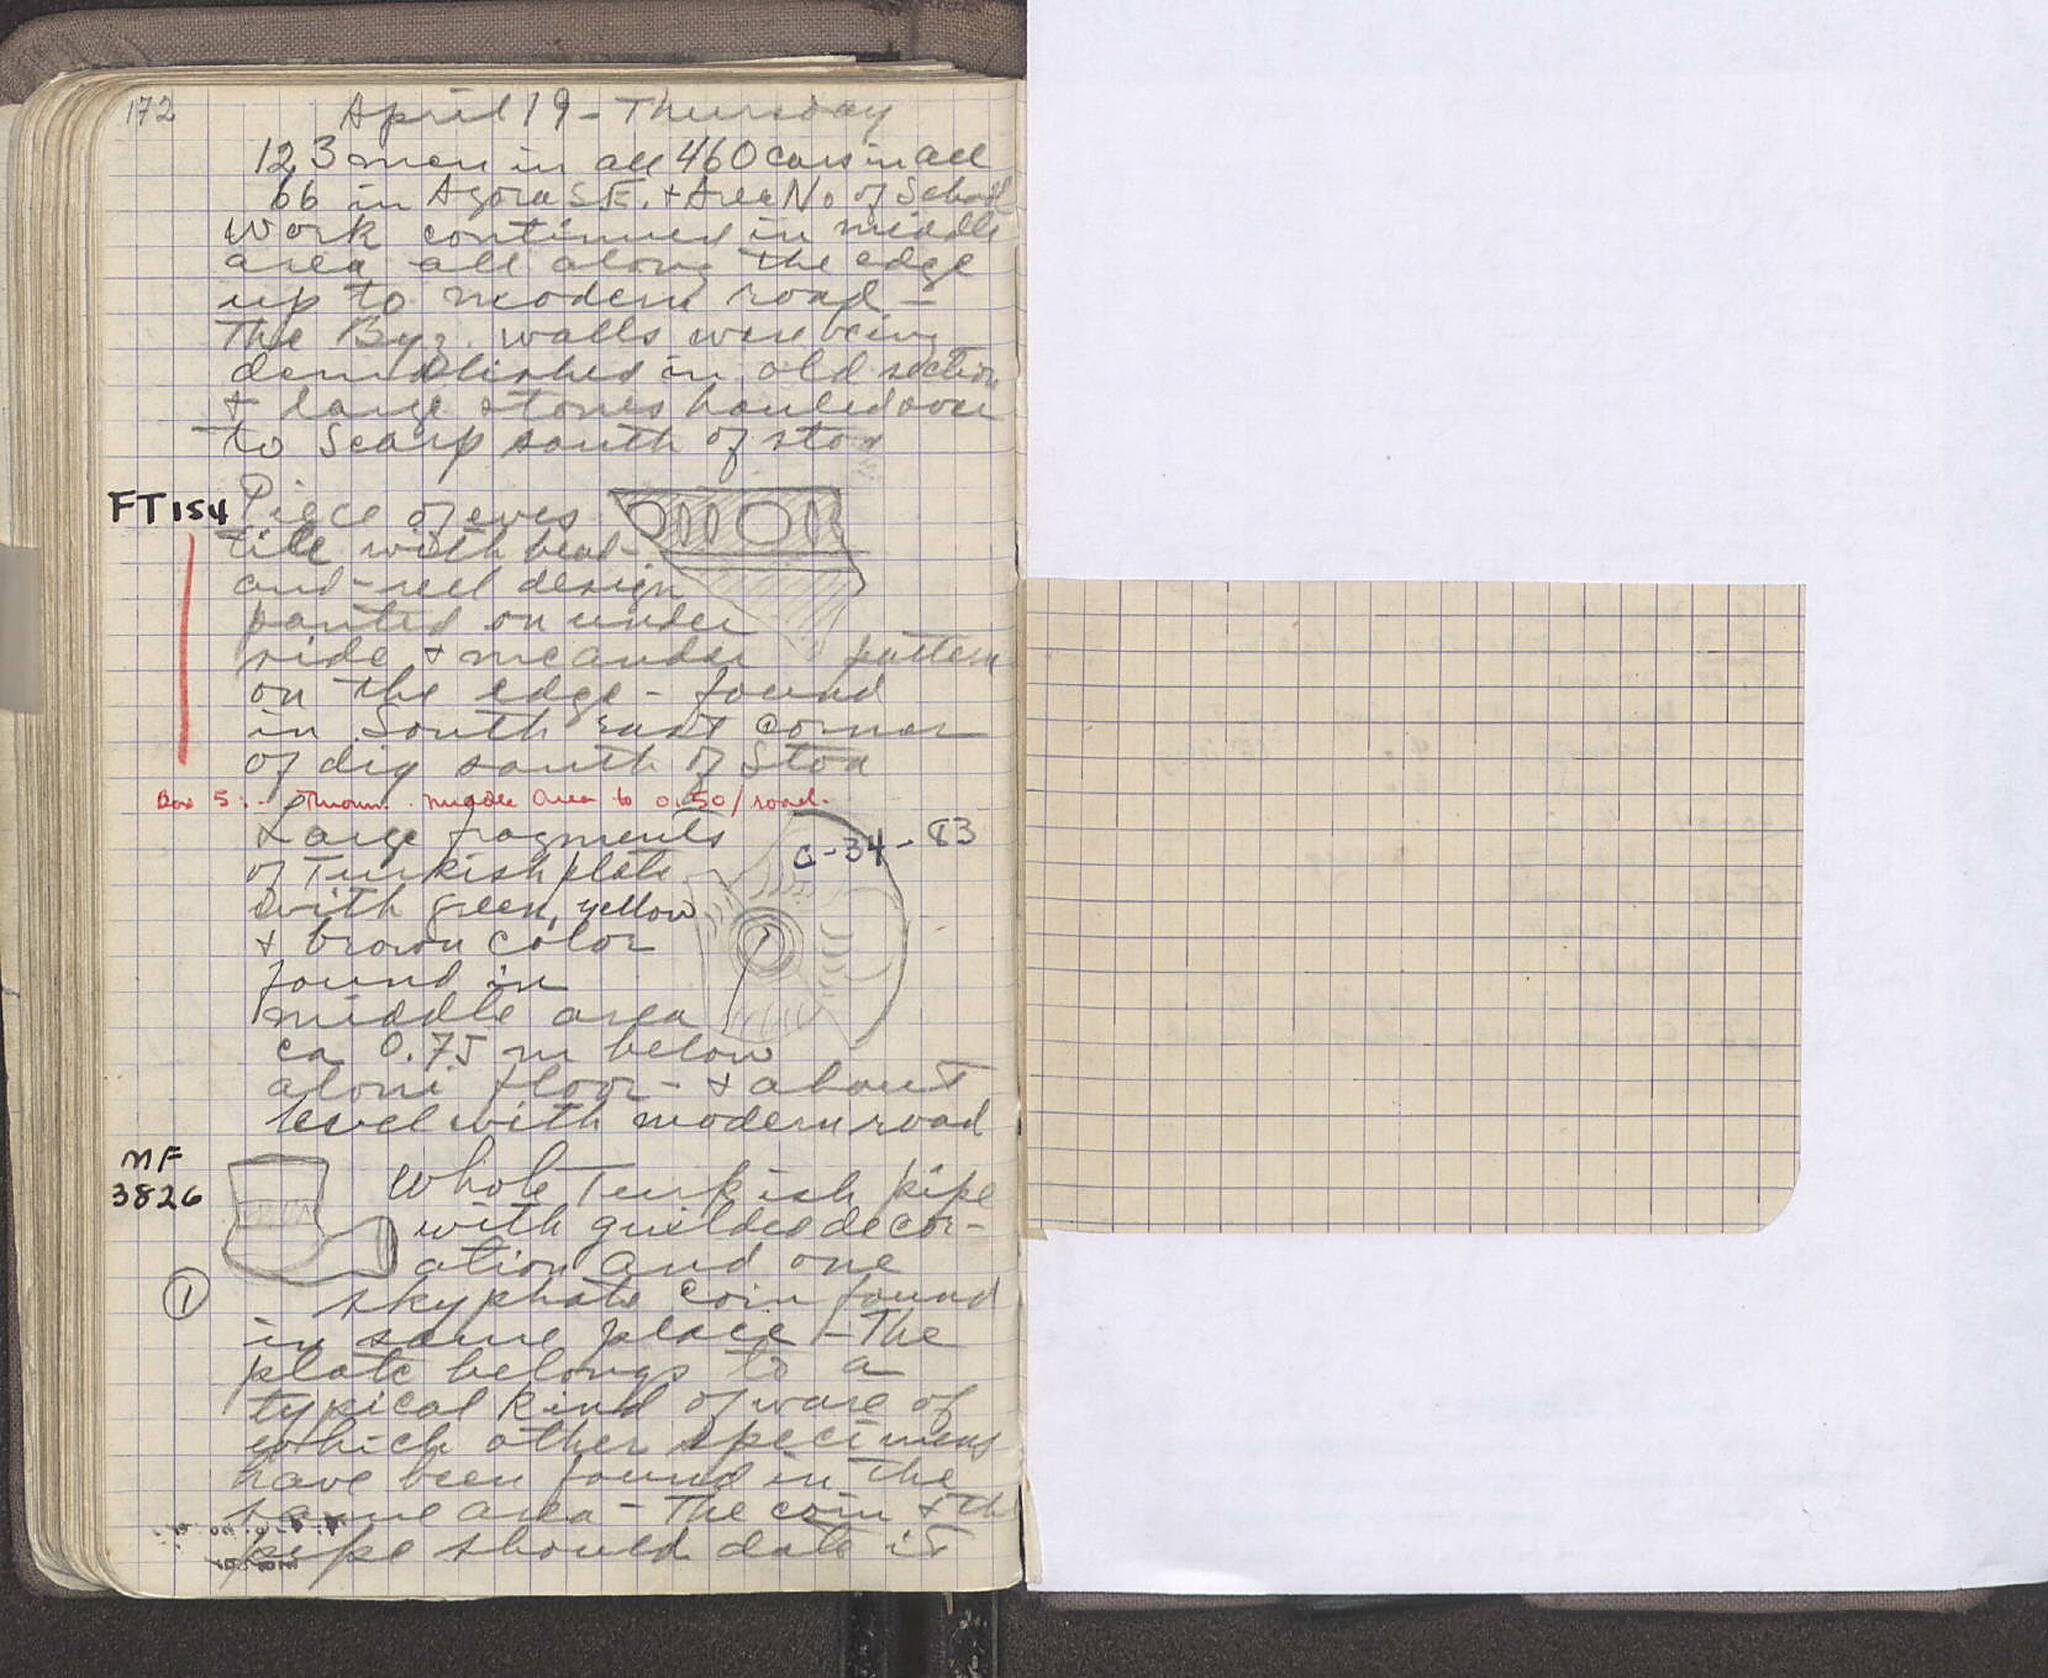 172
April 19 - Thursday
123 men in all 460 cars in all
66 in Agora SE. + Area No of School
Work continued in middle
area all along the edge
up to modern road -
The Byz. walls were being
demolished in old section
+ large stones hauled over
to Scarp south of stoa
FT 154
Piece of eves
tile with bead-
and-reel design
painted on under
side + meander pattern
on the edge - found
in South east corner
of dig south of Stoa
Box 5: middle area to 0.50/road.
C-34-83
Large fragments
of Turkish plate
with green, yellow
+ brown color
found in
middle area
ca 0.75 m below
aloni floor - + about
level with modern road
MF
3826
Whole Turkish pipe
with guilded decor-
ation and one
① skyphate coin found
in same place - The
plate belongs to a
typical kind of ware of
which other specimens
have been found in the
same area - The coin + the
pipe should date it